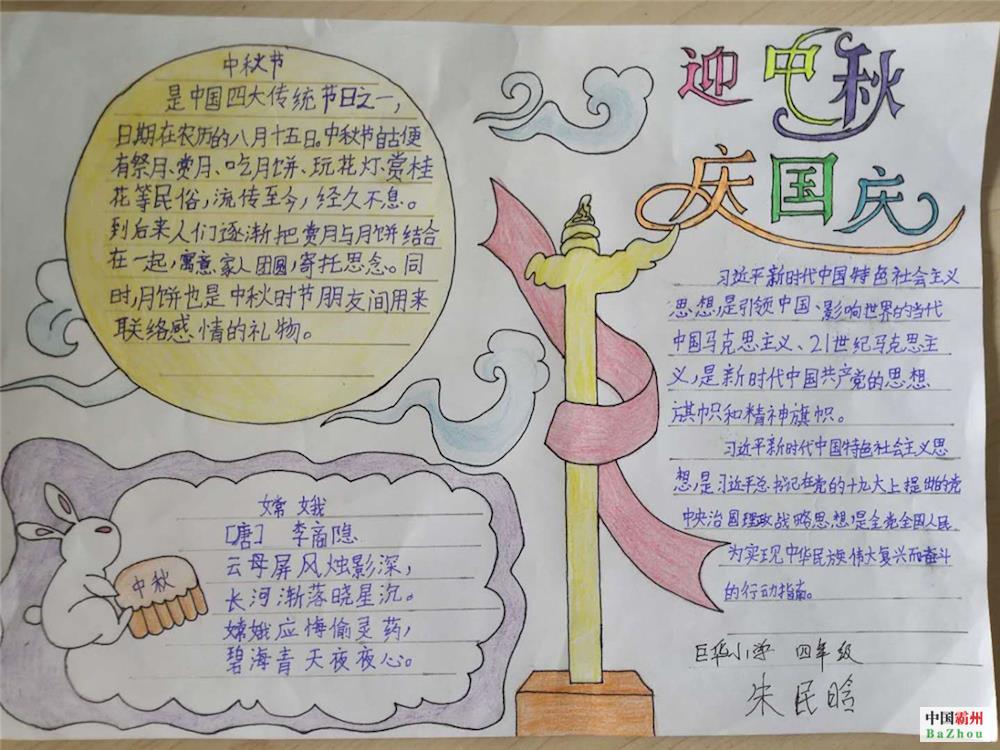 迎中秋
庆国庆
中秋节
是中国四大传统节日之一，
日期在农历的八月十五日。中秋节自古便
有祭月、赏月、吃月饼、玩花灯、赏桂
花等民俗，流传至今，经久不息。
到后来人们逐渐把赏月与月饼结合
在一起，寓意家人团圆，寄托思念。同
时，月饼也是中秋时节朋友间用来
联络感情的礼物。
嫦娥
[唐] 李商隐
云母屏风烛影深，
长河渐落晓星沉。
嫦娥应悔偷灵药，
碧海青天夜夜心。
中秋
习近平新时代中国特色社会主义
思想，是引领中国、影响世界的当代
中国马克思主义、21世纪马克思主
义，是新时代中国共产党的思想
旗帜和精神旗帜。
习近平新时代中国特色社会主义思
想，是习近平总书记在党的十九大上提出的党
中央治国理政战略思想，是全党全国人民
为实现中华民族伟大复兴而奋斗
的行动指南。
巨华小学 四年级
朱民晗
中国霸州
BaZhou